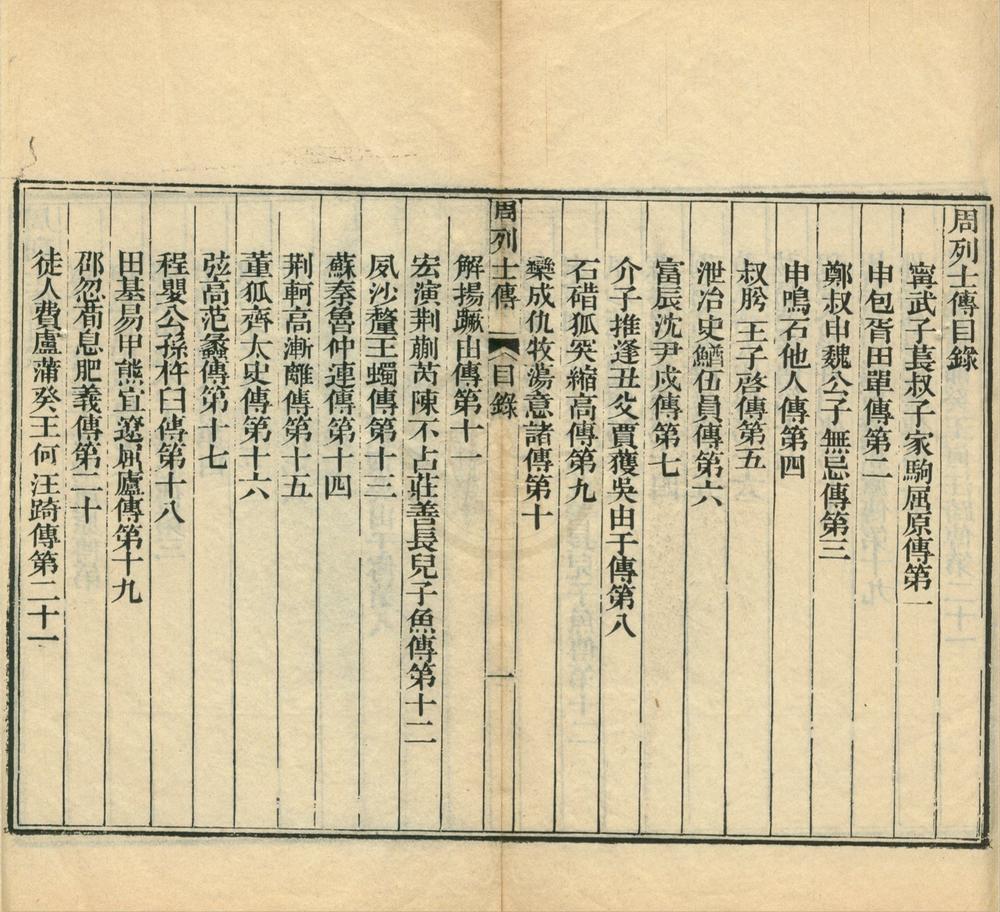 周列士傳目錄
甯武子萇叔子家駒屈原傳第一
申包胥田單傳第二
鄭叔申魏公子無忌傳第三
申鳴石他人傳第四
叔肹王子啓傳第五
泄冶史鰌伍員傳第六
富辰沈尹戍傳第七
介子推逢丑父賈獲吳由于傳第八
石碏狐突縮高傳第九
欒成仇牧蕩意諸傳第十
周列士傳 目錄 一
解揚蹶由傳第十一
宏演荆蒯芮陳不占莊善長兒子魚傳第十二
夙沙釐王蠋傳第十三
蘇秦魯仲連傳第十四
荆軻高漸離傳第十五
董狐齊太史傳第十六
弦高范蠡傳第十七
程嬰公孫杵臼傳第十八
田基易甲熊宜遼屈廬傳第十九
邵忽荀息肥義傳第二十
徒人費盧蒲癸王何汪踦傳第二十一